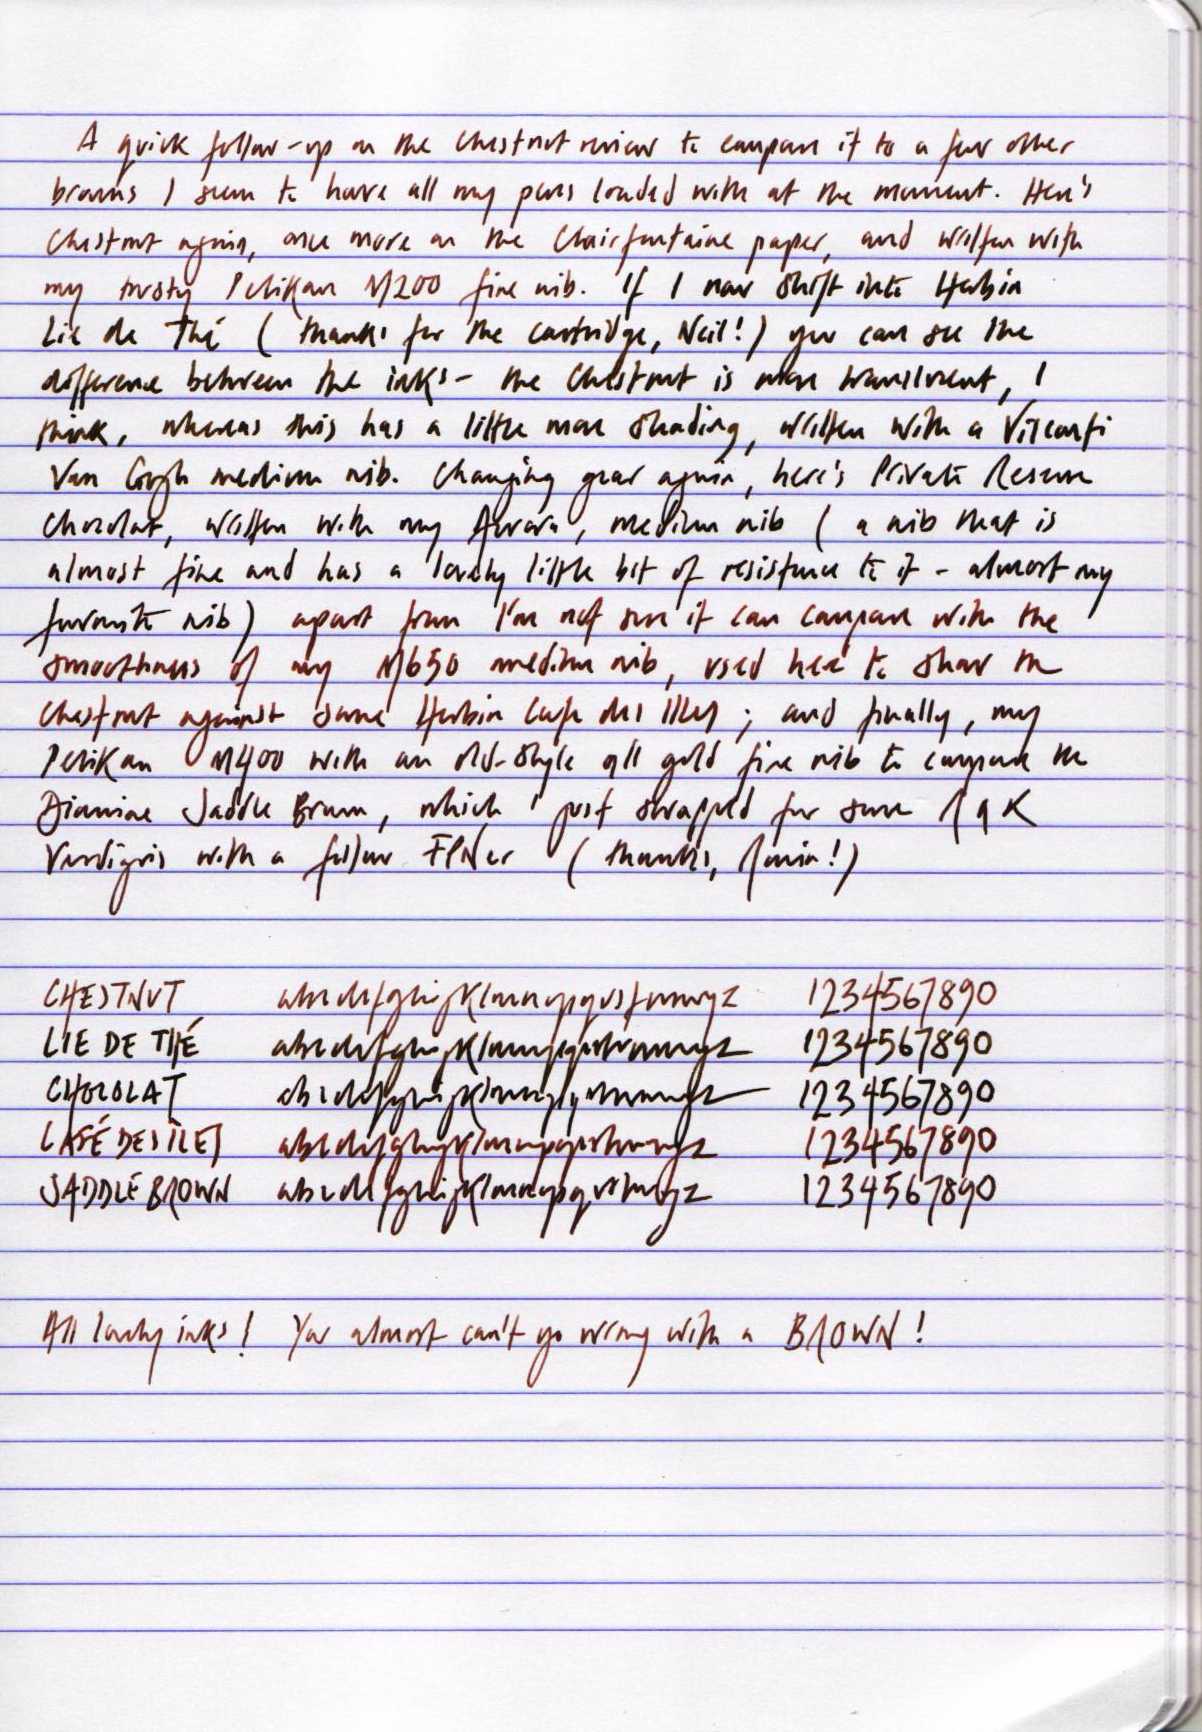 A quick follow-up on the Chestnut review to compare it to a few other
browns I seem to have all my pens loaded with at the moment. Here's
Chestnut again, once more on the Clairfontaine paper, and written with
my trusty Pelikan M200 fine nib. If I now shift into Herbin
Lie de Thé (thanks for the cartridge, Neil!) you can see the
difference between the inks - the Chestnut is more translucent, I
think, whereas this has a little more shading, written with a Visconti
Van Gogh medium nib. Changing gear again, here's Private Reserve
Chocolat, written with my Aurora, medium nib (a nib that is
almost fine and has a lovely little bit of resistance to it - almost my
favourite nib) apart from I'm not sure it can compare with the
smoothness of my M650 medium nib, used here to show the
Chestnut against some Herbin Café des Iles; and finally, my
Pelikan M400 with an old-style all gold fine nib to compare the
Diamine Saddle Brown, which I just swapped for some R&K
Verdigris with a fellow FPNer (thanks,
CHESTNUT abcdefghijklmnopqrstuvwxyz 1234567890
LIE DE THÉ abcdefghijklmnopqrstuvwxyz 1234567890
CHOCOLAT abcdefghijklmnopqrstuvwxyz 1234567890
CAFÉ DES ÎLES abcdefghijklmnopqrstuvwxyz 1234567890
SADDLE BROWN abcdefghijklmnopqrstuvwxyz 1234567890
All lovely inks! You almost can't go wrong with a BROWN!